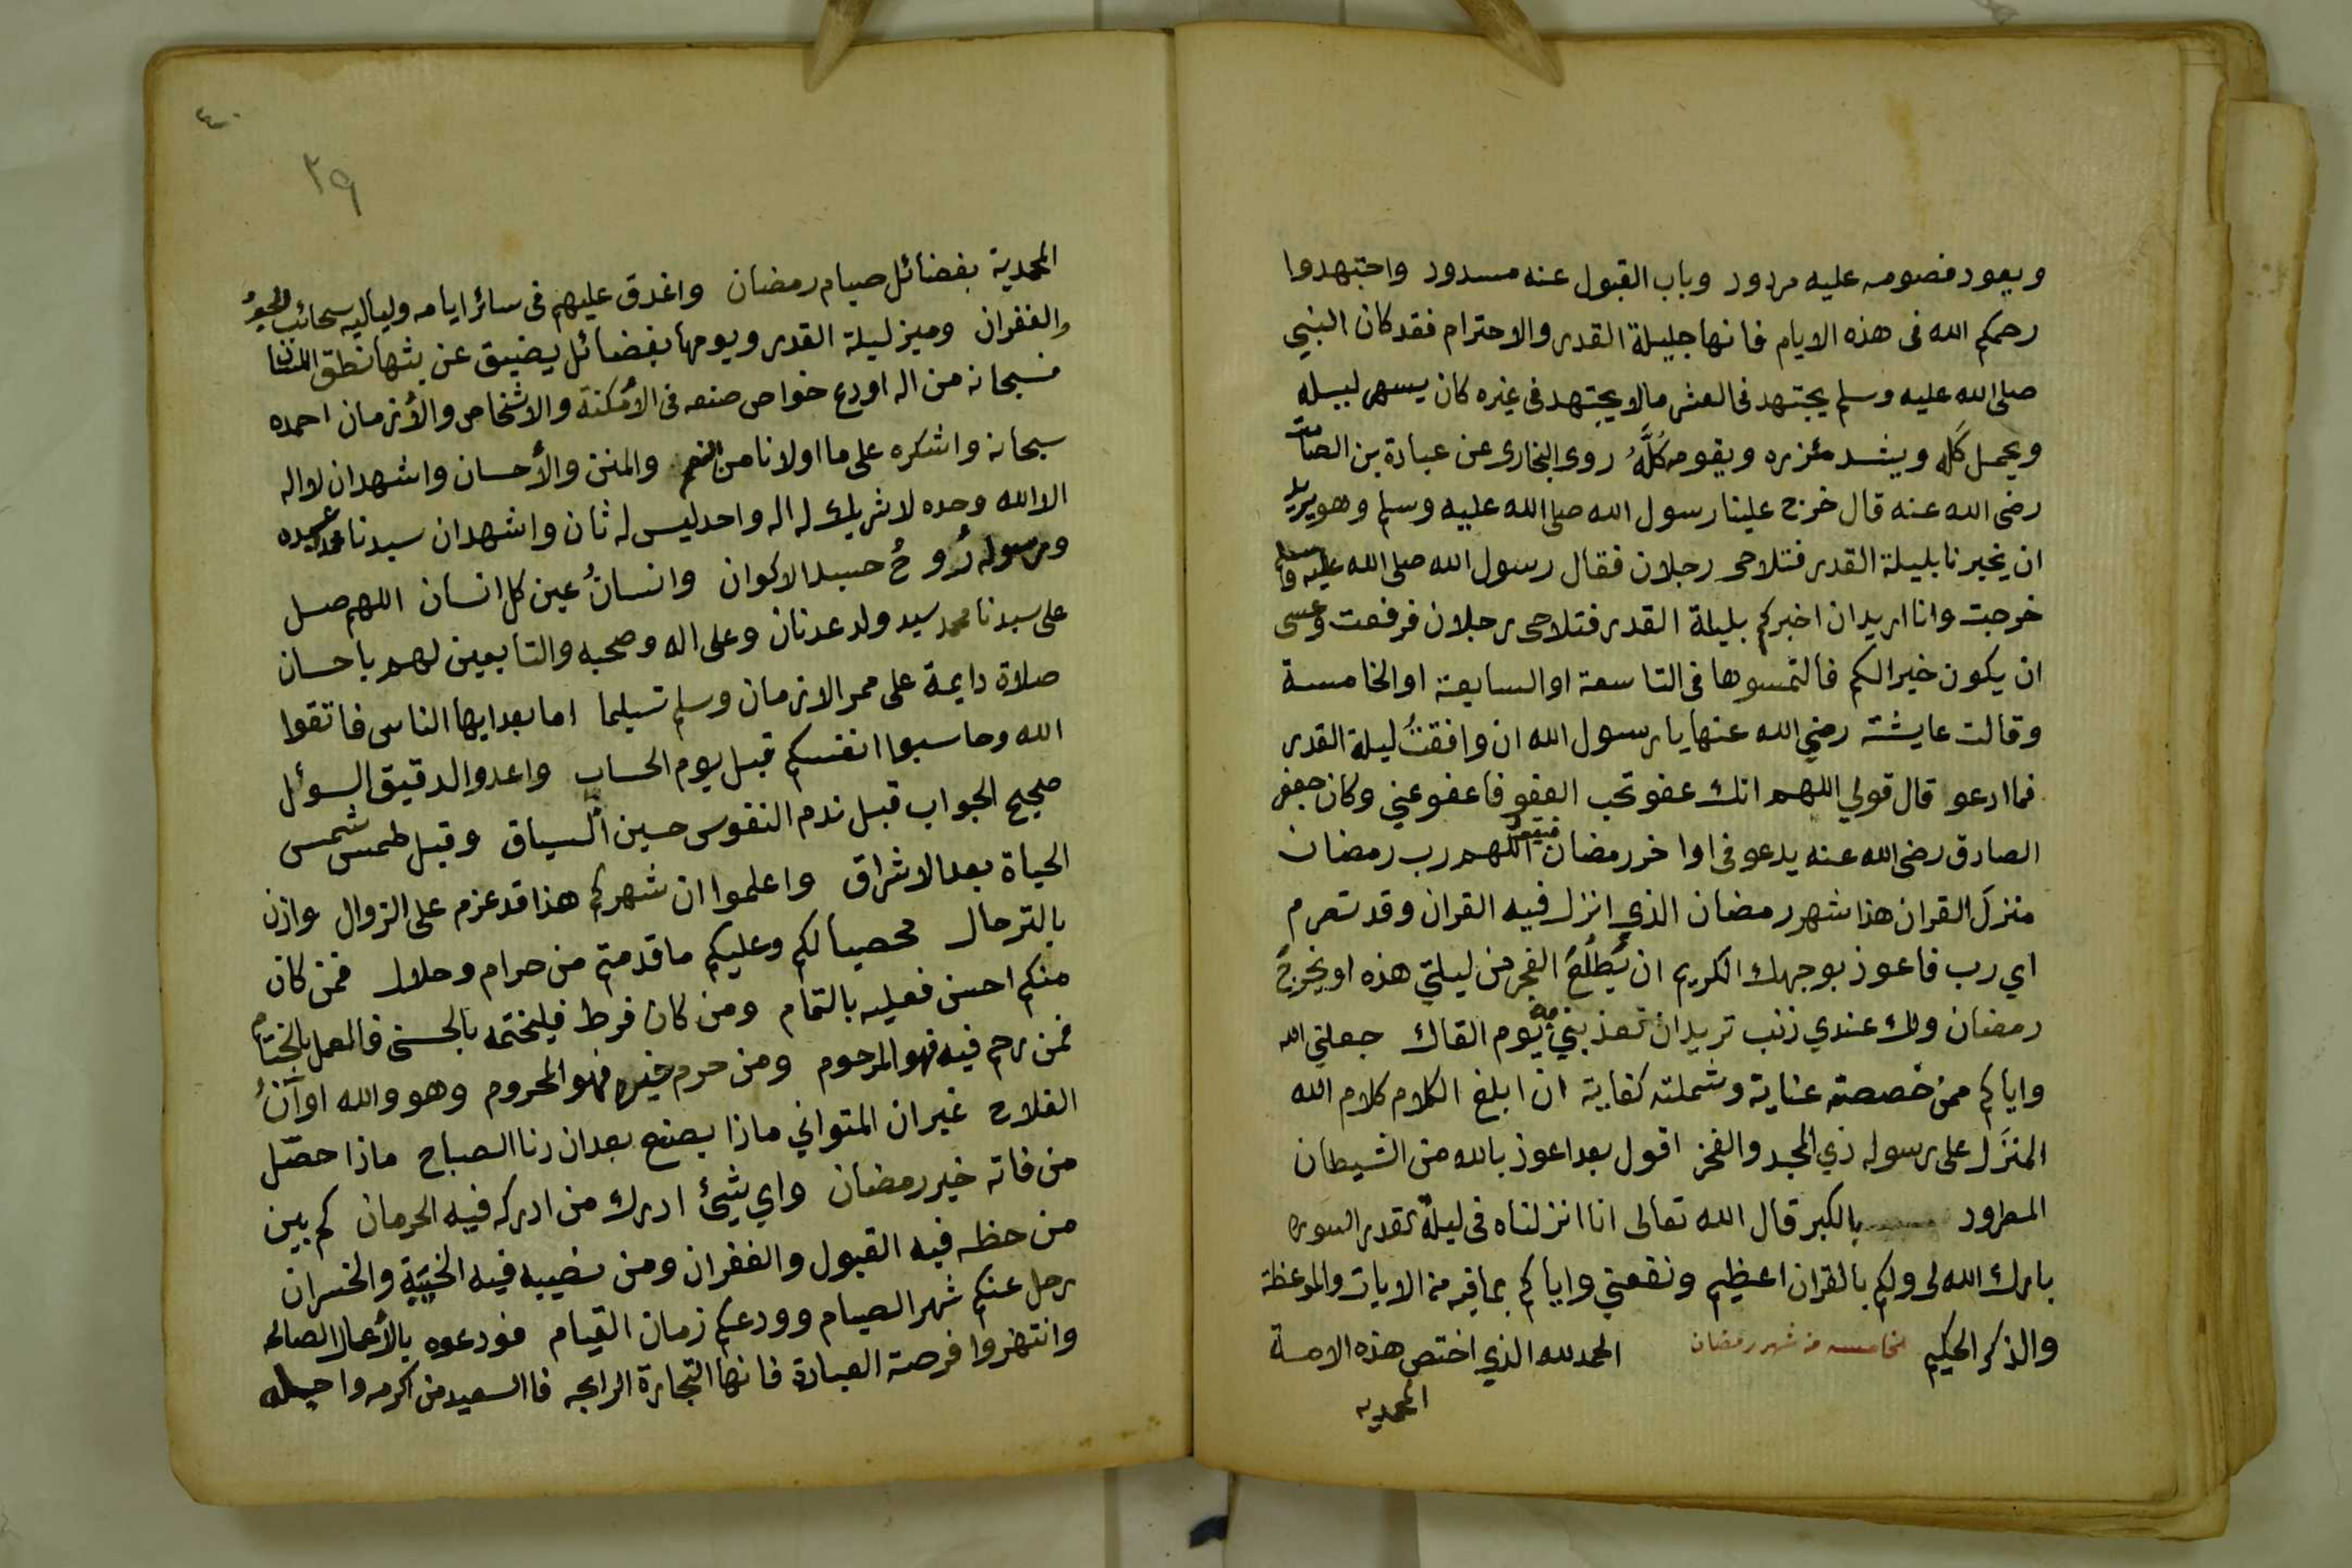 ويعود فصومه عليه مردود وباب القبول عنه مسدود واجتهدوا
رحمكم الله فى هذه الايام فانها جليلة القدر والاحترام فقد كان النبي
صلى الله عليه وسلم يجتهد فى العشر مالا يجتهد فى غيره كان يسهر ليله
ويحمل كَله ويشد مئزره ويقومه كُلَّهُ روى البخارى عن عبادة بن الصامت
رضى الله عنه قال خرج علينا رسول الله صلى الله عليه وسلم وهو يريد
ان يخبرنا بليلة القدر فتلاحى رجلان فقال رسول الله صلى الله عليه وسلم
خرجت وانا اريد ان اخبركم بليلة القدر فتلاحى رجلان فرفعت وعسى
ان يكون خيرا لكم فالتمسوها فى التاسعة او السابعة او الخامسة
وقالت عايشة رضي الله عنها يا رسول الله ان وافقتُ ليلة القدر
فما ادعو قال قولي اللهم انك عفو تحب العفو فاعفو عني وكان جعفر
الصادق رضى الله عنه يدعو فى اواخر رمضان فيقول اللهم رب رمضان
منزلَ القران هذا شهر رمضان الذي انزل فيه القران وقد تصرم
اي رب فاعوذ بوجهك الكريم ان يُطلُعَ الفجر من ليلتي هذه او يخرجَ
رمضان ولك عندي ذنب تريد ان تعذبني به يوم القاك جعلني الله
واياكم ممن خصصته عناية وشملته كفاية ان ابلغ الكلام كلام الله
المنزَل على رسوله ذي المجد والفخر اقول بعد اعوذ بالله من الشيطان
المطرود بالكبر قال الله تعالى انا انزلناه فى ليلة القدر السوره
بارك الله لى ولكم بالقران العظيم ونفعني واياكم بما فيه من الايات والموعظة
والذكر الحكيم خامسه من شهر رمضان الحمد لله الذي اختص هذه الامة
المحمديه
٤٠
٣٩
المحمدية بفضائل صيام رمضان واغدق عليهم فى سائر ايامه ولياليه سحائب الجود
والغفران وميز ليلة القدر ويومها بفضائل يضيق عن بثها نطق اللسان
فسبحانه من اله اودع خواص صنعه فى الأمكنة والاشخاص والأزمان احمده
سبحانه واشكره على ما اولانا من النعم والمنن والأحسان واشهد ان لا اله
الا الله وحده لا شريك له اله واحد ليس له ثان واشهد ان سيدنا محمد عبده
ورسوله رُوحُ جسد الاكوان وانسانُ عين كل انسان اللهم صل
على سيدنا محمد سيد ولد عدنان وعلى اله وصحبه والتابعين لهم باحسان
صلاة دايمة على ممر الازمان وسلم تسليما اما بعد ايها الناس فاتقوا
الله وحاسبوا انفسكم قبل يوم الحساب واعدوا لدقيق السوئل
صحيح الجواب قبل ندم النفوس حين السياق وقبل طمس شمس
الحياة بعد الاشراق واعلموا ان شهركم هذا قد عزم على الزوال واذن
بالترحال محصيا لكم وعليكم ما قدمتم من حرام وحلال فمن كان
منكم احسن فعليه بالتمام ومن كان فرط فليختمه بالحسنى فالعمل بالختام
فمن رحم فيه فهو المرحوم ومن حرم خيره فهو المحروم وهو والله اوآنُ
الفلاح غير ان المتواني ماذا يصنع بعد ان دنا الصباح ماذا حصّل
من فاته خير رمضان واي شيئ ادرك من ادركه فيه الحرمان كم بين
من حظه فيه القبول والغفران ومن نصيبه فيه الخيبة والخسران
رحل عنكم شهر الصيام وودعكم زمان القيام فودعوه بالأعمال الصالحه
وانتهزوا فرصة العبادة فانها التجارة الرابحه فالسعيد من اكرمه واجله